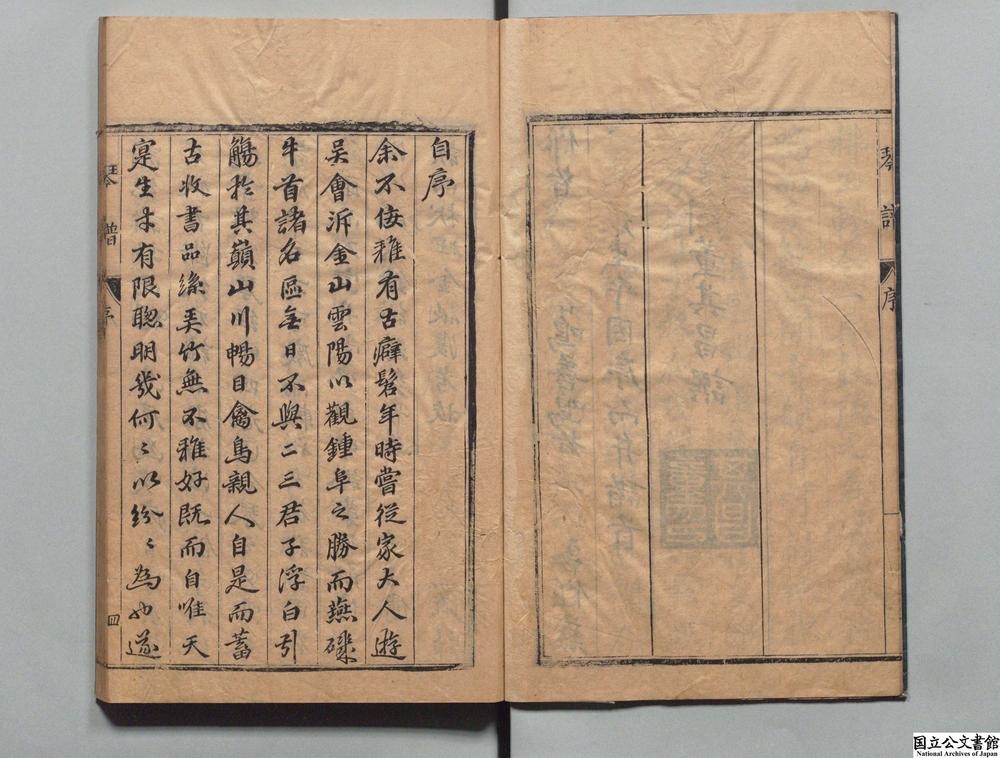 琴譜
序
自序
余不佞雅有古癖髫年時嘗從家大人遊
吳會泝金山雲陽以觀鍾阜之勝而燕磯
牛首諸名區無日不與二三君子浮白引
觴於其巔山川暢目禽鳥親人自是而蓄
古收書品絲美竹無不雅好既而自唯天
寔生才有限聰明幾何〻以紛〻為也遂
琴譜
序
四
国立公文書館
National Archives of Japan